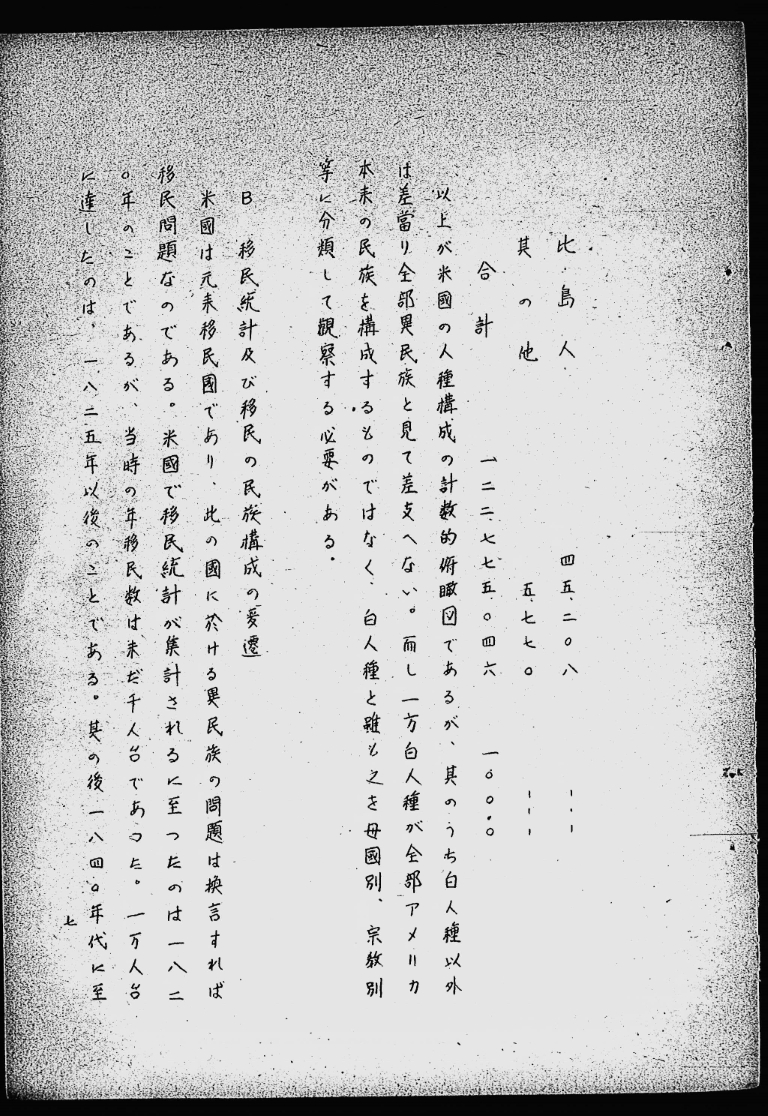 比島人　四五、二〇八　---
其の他　五、七七〇　---
合計　一二二、七七五、〇四六　一〇〇・〇
以上が米國の人種構成の計数的俯瞰図であるが、其のうち白人種以外
は差當り全部異民族と見て差支へない。而し一方白人種が全部アメリカ
本来の民族を構成するものではなく、白人種と雖も之を母國別、宗教別
等に分類して観察する必要がある。
B　移民統計及び移民の民族構成の変遷
米國は元来移民國であり、此の國に於ける異民族の問題は換言すれば
移民問題なのである。米國で移民統計が集計されるに至つたのは一八二
〇年のことであるが、当時の年移民数は未だ千人台であつた。一万人台
に達したのは、一八二五年以後のことである。其の後一八四〇年代に至
七